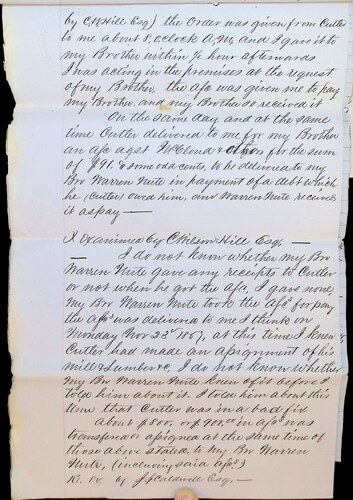 by C W Hill Esq) the Order was given from Cutler
to me about 8, oclock A, M, and I gave it to
my Brother within ½ hour afterwards
I was acting in the premises at the request
of my Brother, the a/c was given me to pay
my Brother, and my Brother so recived it
On the same day and at the same
time Cutler delivered to me for my Brother
an a/c agst McCloud & others for the sum
of $91. & some odd cents, to be delivered to my
Bro Warren Nute in payment of a debt which
he (Cutler) owed him, and Warren Nute receive
it as pay —
X Examined by C Wilson Hill Esq. —
— I do not know whether my Bro
Warren Nute gave any receipts to Cutler
or not when he got the a/cs, I gave none,
my Bro Warren Nute took the a/cs for pay
the a/cs was delivered to me I think on
Monday Nov 23d 1867, at this time I knew
Cutler had made an assignment of his
mill & Lumber &c, I do not know whether
my Bro Warren Nute knew of it before I
told him about it. I told him about this
time that Cutler was in a bad fix
About $800. or $900.00 in a/cs was
transfered or assigned at the same time of
those above stated, to my Bro Warren
Nute, (including said a/cs)
Re. Ex. by J J Caldwell Esq —